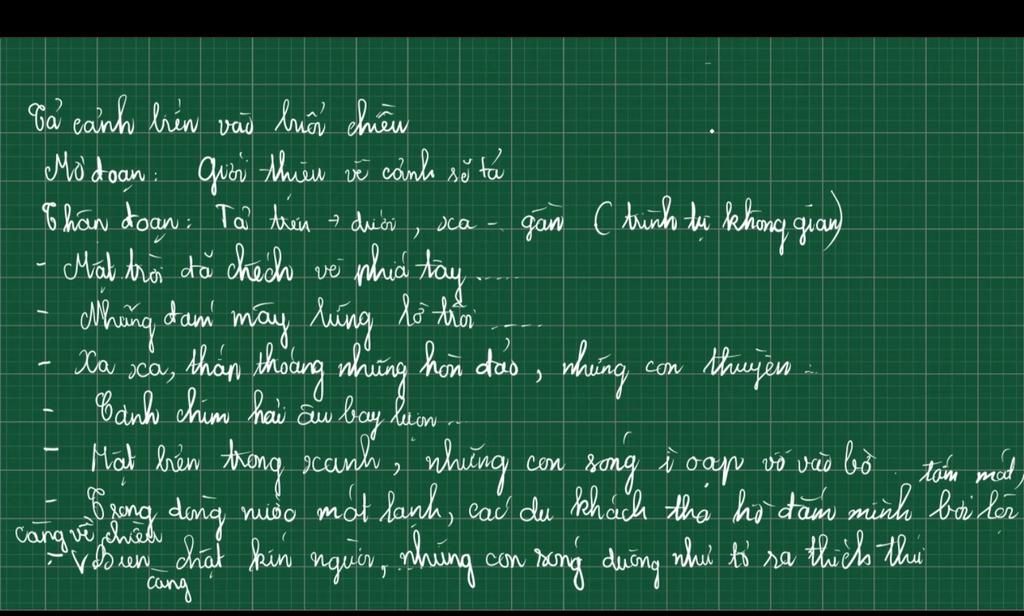 Tả cảnh biển vào buổi chiều
Mở đoạn: Giới thiệu về cảnh sẽ tả
Thân đoạn: Tả trên → dưới, xa - gần (trình tự không gian)
- Mặt trời đã chếch về phía tây.....
- Những đám mây lững lờ trôi .....
- Xa xa, thấp thoáng những hòn đảo, những con thuyền..
- Cánh chim hải âu bay lượn...
- Mặt biển trong xanh, những con sóng ì oạp vỗ vào bờ
tắm mát,
- Trong dòng nước mát lạnh, các du khách thỏa hồ đắm mình bơi lội
càng về chiều
- V Biển chật kín người, những con sóng dường như tỏ ra thích thú
càng